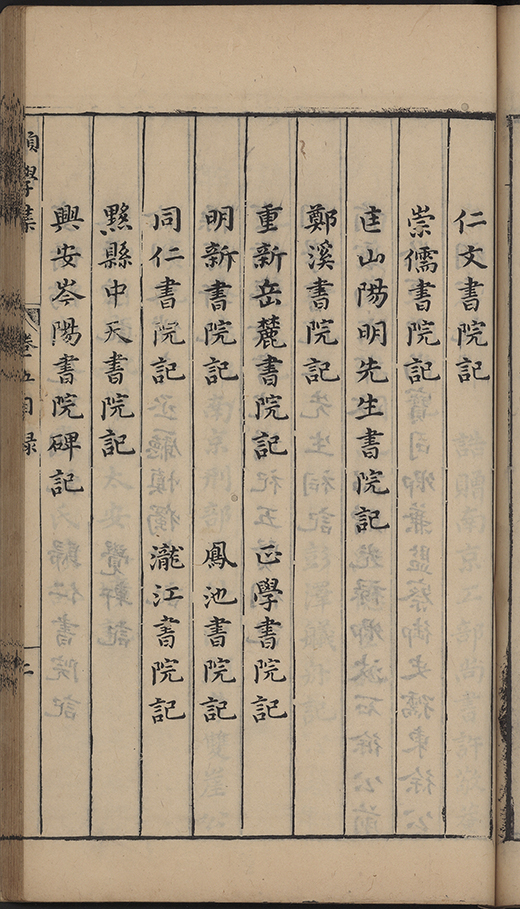 仁文書院記
崇儒書院記
匡山陽明先生書院記
鄭溪書院記
重新岳麓書院記 正學書院記
明新書院記 鳳池書院記
同仁書院記 瀧江書院記
黟縣中天書院記
興安岑陽書院碑記
願學集 卷五目錄 二